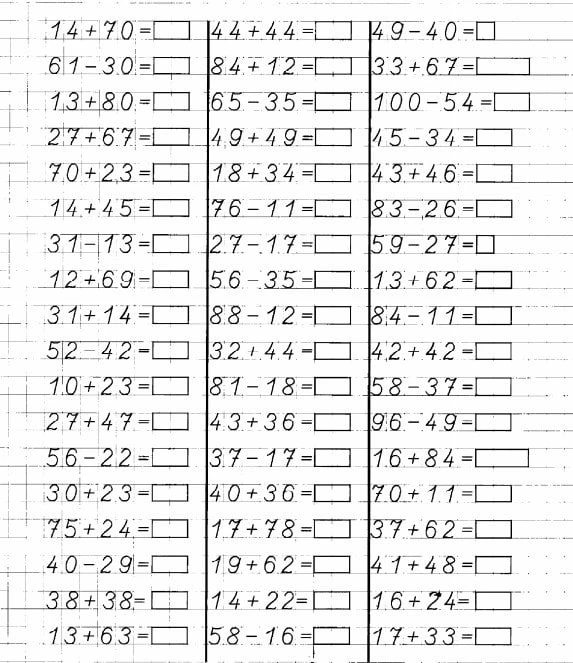 14+70=
61-30=
13+80=
27+67=
70+23=
14+45=
31-13=
12+69=
31+14=
52-42=
10+23=
27+47=
56-22=
30+23=
75+24=
40-29=
38+38=
13+63=
44+44=
84+12=
65-35=
49+49=
18+34=
76-11=
27-17=
56-35=
88-12=
32+44=
81-18=
43+36=
37-17=
40+36=
17+78=
19+62=
14+22=
58-16=
49-40=
33+67=
100-54=
45-34=
43+46=
83-26=
59-27=
13+62=
84-11=
42+42=
58-37=
96-49=
16+84=
70+11=
37+62=
41+48=
16+24=
17+33=